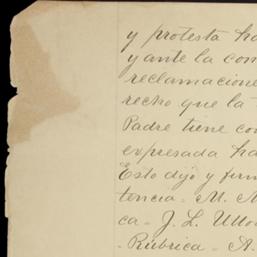 y protesta ha
y ante la com
reclamacione
recho que la
Padre tiene con
expresada ha
Esto dijo y firm
tencia. - M. M
ca - J. L. Ullo
- Rúbrica - A.